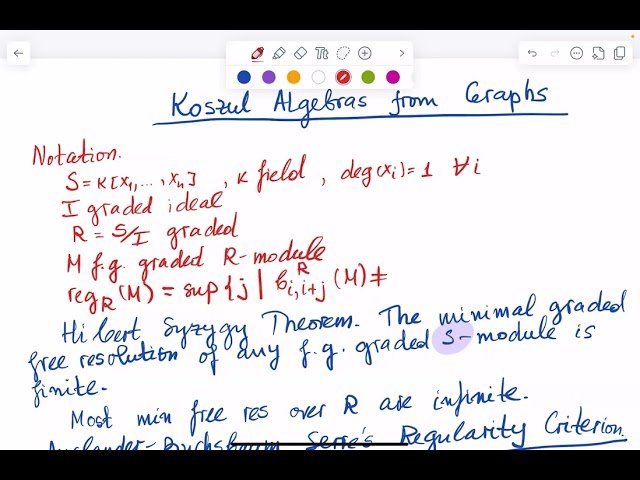 Tt
Koszul Algebras from Graphs
Notation.
S = K[x₁, ..., xₙ] , K field , deg(xᵢ) = 1 ∀i
I graded ideal
R = S/I graded
M f.g. graded R-module
reg_R(M) = sup{j | b^R_{i,i+j}(M) ≠
Hilbert Syzygy Theorem. The minimal graded
free resolution of any f.g. graded S-module is
finite.
Most min free res over R are infinite.
Auslander-Buchsbaum Serre's Regularity Criterion.